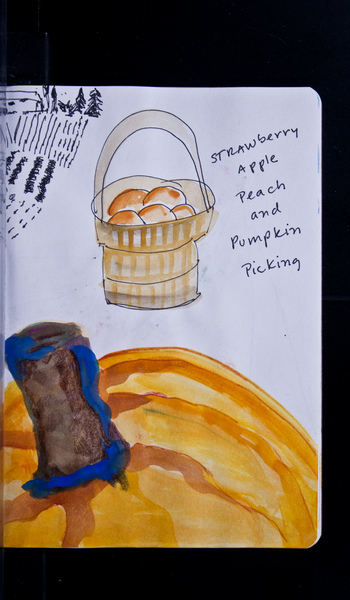 STRAWberry
Apple
Peach
and
Pumpkin
Picking